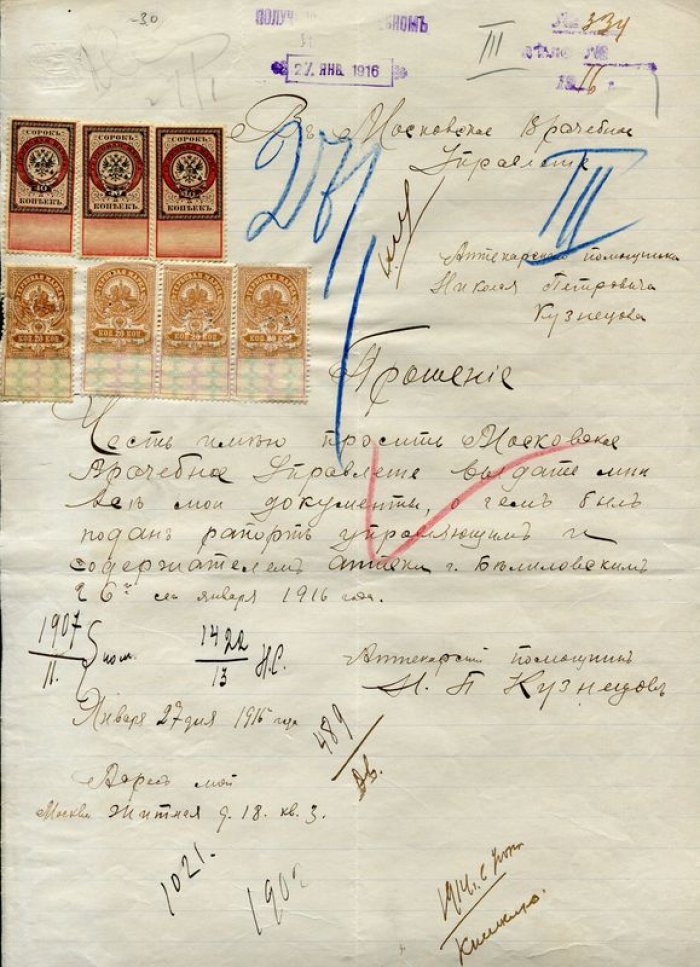 -30
ПОЛУЧ
27 ЯНВ. 1916
III
№ 334
16 г.
СОРОКЪ СОРОКЪ СОРОКЪ
40 40 40
КОПѢЕКЪ. КОПѢЕКЪ. КОПѢЕКЪ.
ГЕРБОВАЯ МАРКА ГЕРБОВАЯ МАРКА ГЕРБОВАЯ МАРКА ГЕРБОВАЯ МАРКА
КОП. 20 КОП. КОП. 20 КОП. КОП. 20 КОП. КОП. 20 КОП.
Въ Московское Врачебное
Управление
III
Аптекарского помощника
Николая Петровича
Кузнецова
Прошенiе
Честь имѣю просить Московское
Врачебное Управление выдать мнѣ
всѣ мои документы, о чемъ былъ
поданъ рапортъ управляющимъ и
содержателемъ аптеки г. Бѣлиловскимъ
26го января 1916 года.
1907
11.
1422
13 Н.С.
Аптекарскiй помощникъ
Н. П Кузнецовъ
Января 27 дня 1916 года
489
Адресъ мой
Москва Житная д. 18. кв. 3.
1021.
1902
1914 г.